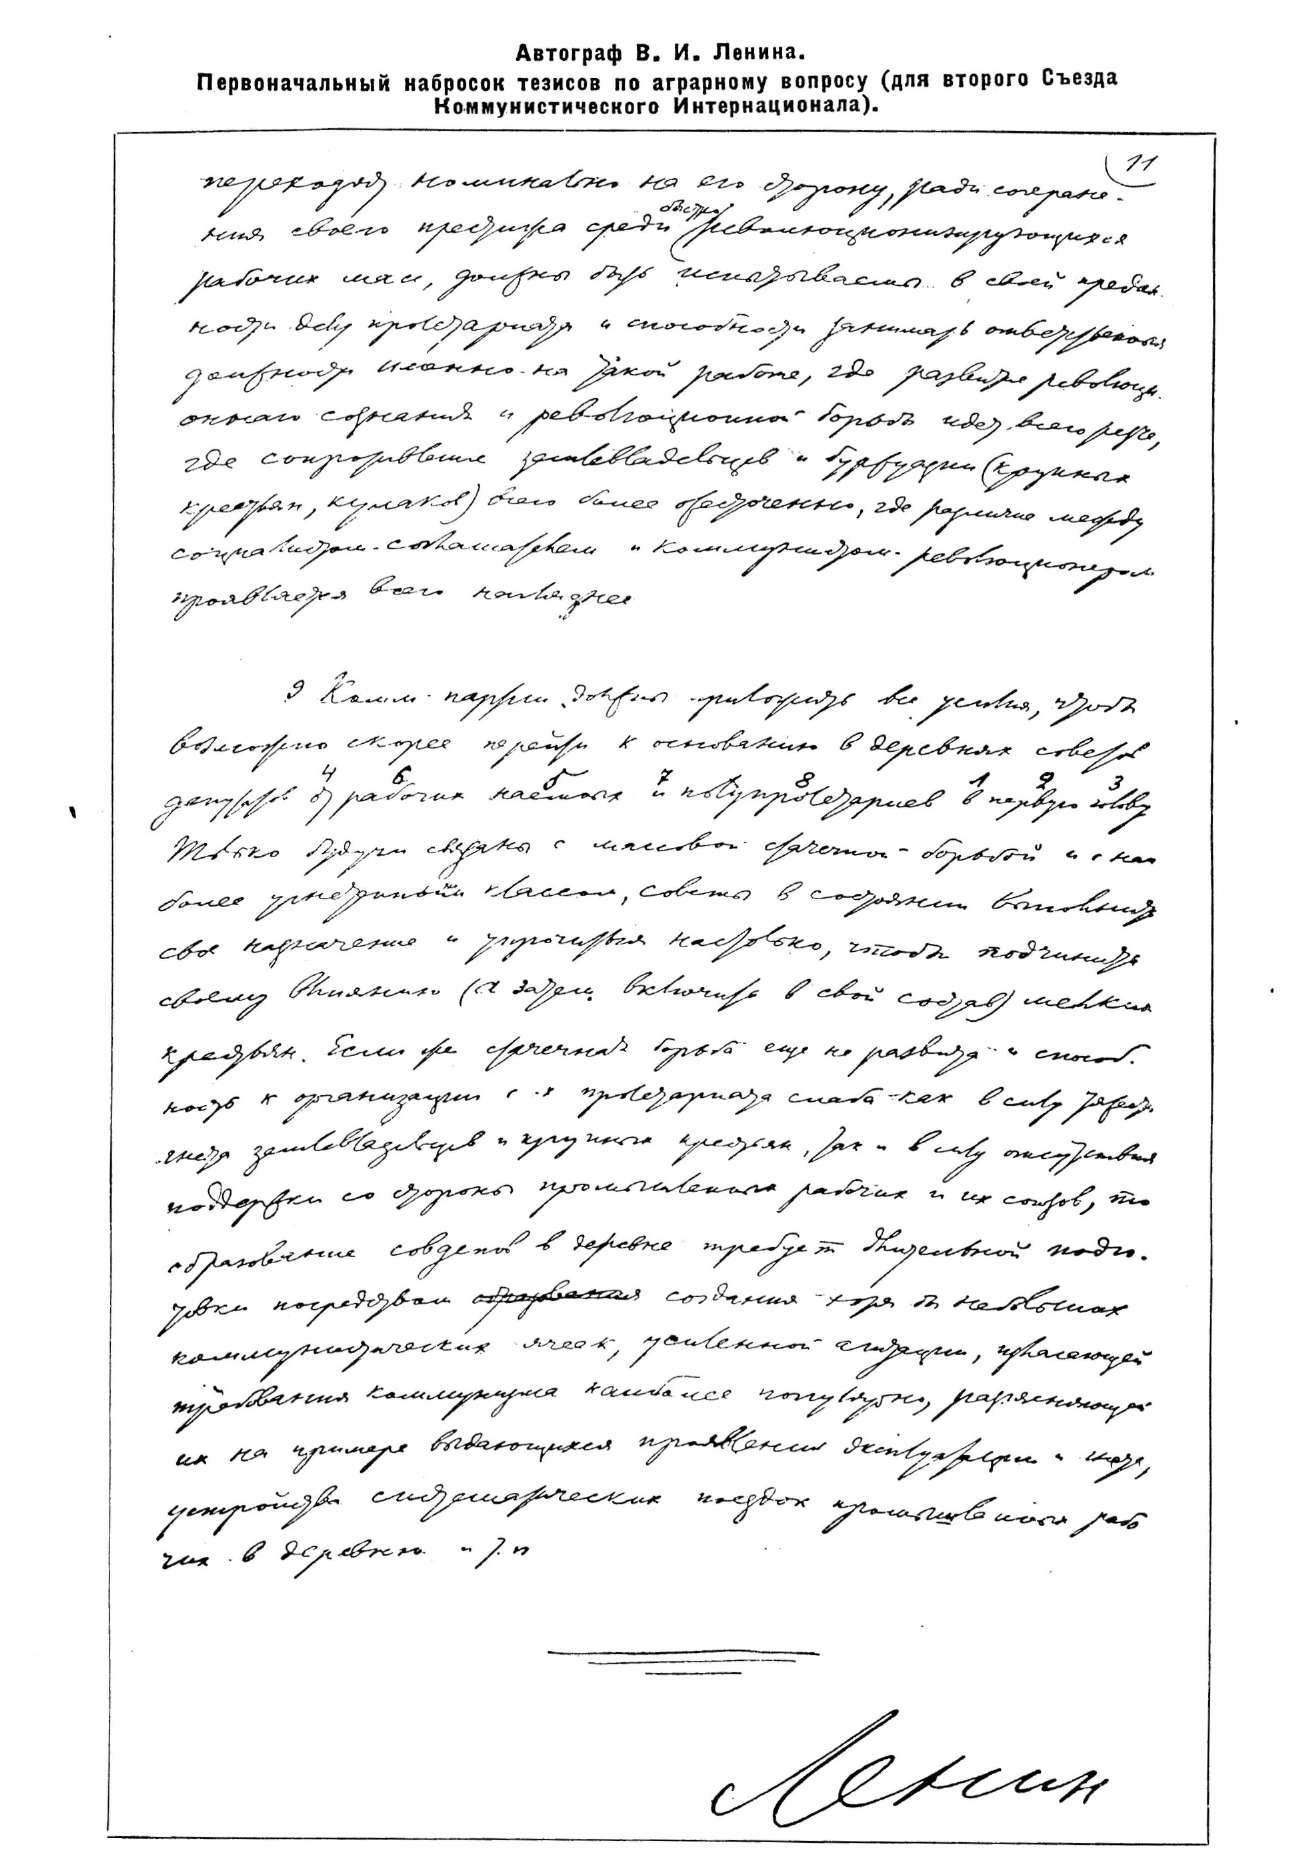 Автограф В. И. Ленина.
Первоначальный набросок тезисов по аграрному вопросу (для второго Съезда
Коммунистического Интернационала).
11
переходят номинально на его сторону, ради сохране-
быстро
ния своего престижа среди революционизирующихся
рабочих масс, должны быть испытываемы в своей предан-
ности делу пролетариата и способности занимать ответственные
должности именно на такой работе, где развитие революци-
онного сознания и революционной борьбы идет всего резче,
где сопротивление землевладельцев и буржуазии (крупных
крестьян, кулаков) всего более ожесточенно, где различие между
социалистом-соглашателем и коммунистом-революционером
проявляется всего нагляднее
9 Комм. партии должны приложить все усилия, чтобы
возможно скорее перейти к основанию в деревнях советов
4 6 5 7 8 1 2 3
депутатов от рабочих наемных и полупролетариев в первую голову
Только будучи связаны с массовой стачечной борьбой и с наи
более угнетенным классом, советы в состоянии выполнить
свое назначение и упрочиться настолько, чтобы подчинить
своему влиянию (а затем включить в свой состав) мелких
крестьян. Если же стачечная борьба еще не развита и способ-
ность к организации с.-х пролетариата слаба как в силу тяжести
гнета землевладельцев и крупных крестьян, так и в силу отсутствия
поддержки со стороны промышленных рабочих и их союзов, то
образование совдепов в деревне требует длительной подго-
товки посредством образования создания хотя бы небольших
коммунистических ячеек, усиленной агитации, излагающей
требования коммунизма наиболее популярно, разъясняющей
их на примере выдающихся проявлений эксплуатации и гнета,
устройства систематических поездок промышленных рабо
чих в деревню и т. п
Ленин